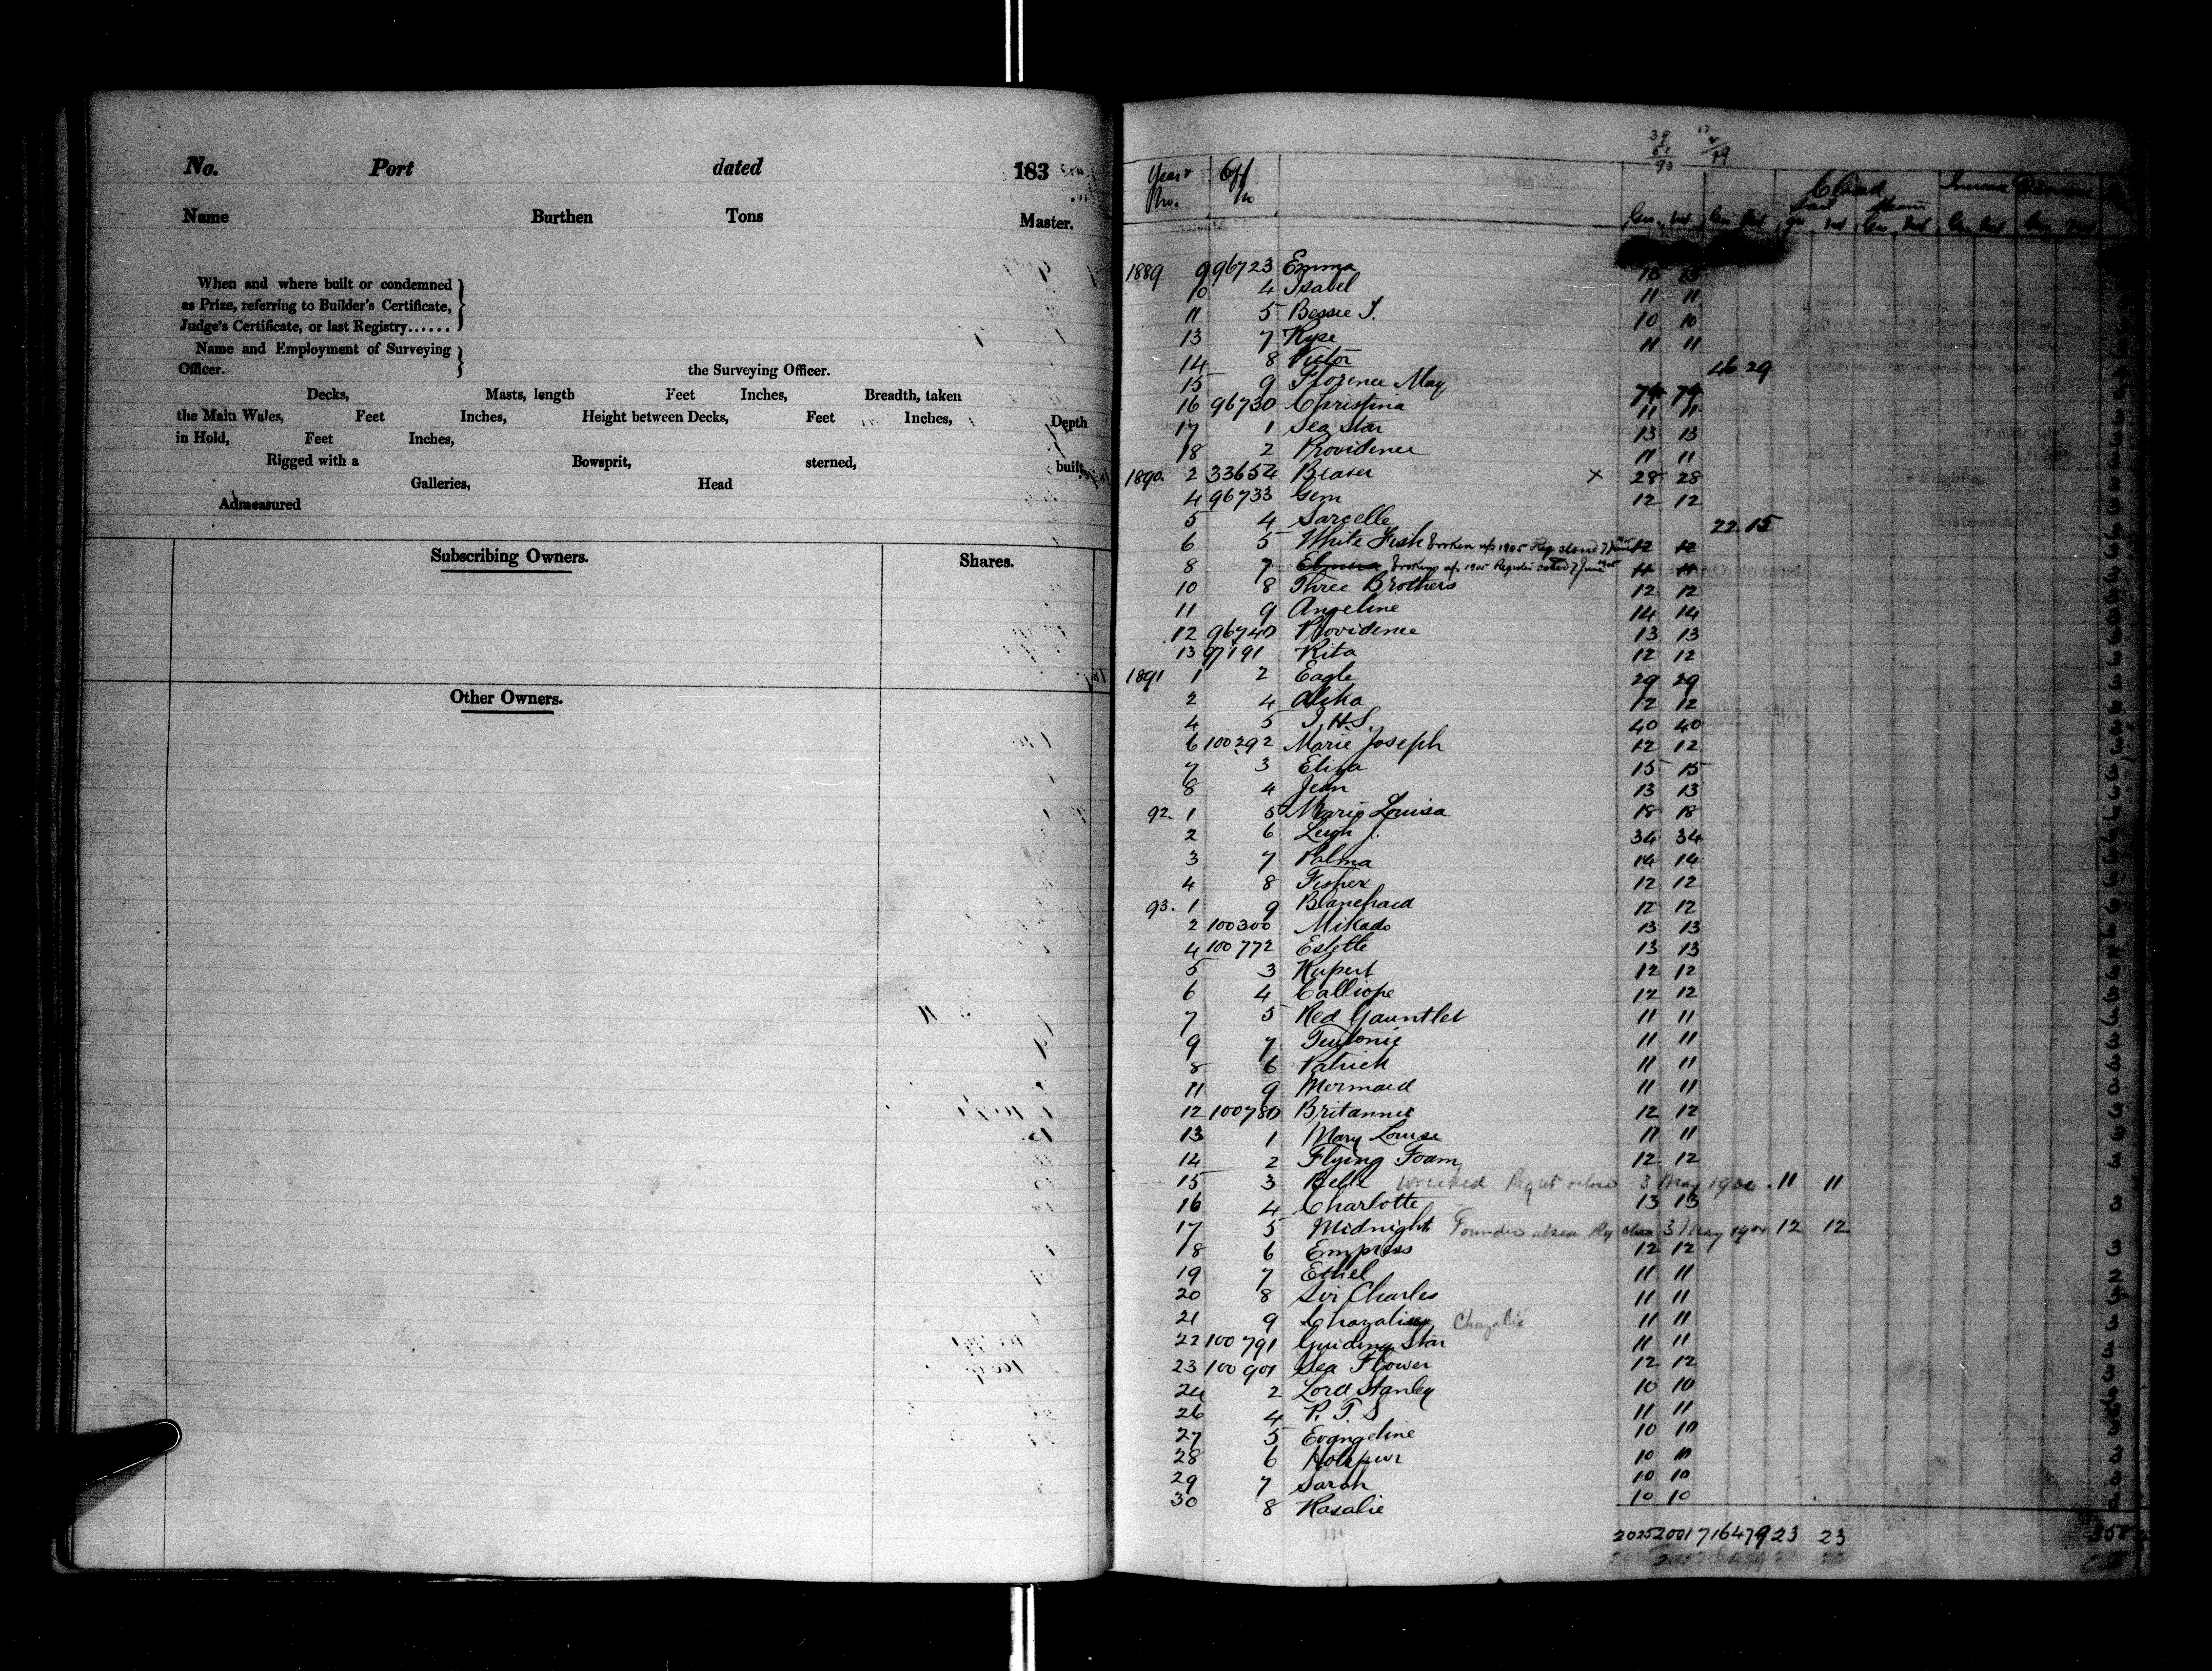 No. Port dated 183
Name Burthen Tons Master.
When and where built or condemned
as Prize, referring to Builder's Certificate,
Judge's Certificate, or last Registry......
Name and Employment of Surveying
Officer. the Surveying Officer.
Decks, Masts, length Feet Inches, Breadth, taken
the Main Wales, Feet Inches, Height between Decks, Feet Inches, Depth
in Hold, Feet Inches,
Rigged with a Bowsprit, sterned, built,
Galleries, Head
Admeasured
Subscribing Owners. Shares.
Other Owners.
Year & No. Off No
Closed
Sail Steam
1889 9 96723 Emma 15 15
10 4 Isabel 11 11
11 5 Bessie J. 10 10
13 7 Kyse 11 11
14 8 Victor 46 29
15 9 Florence May 79 79
16 96730 Christina 11 11
17 1 Sea Star 13 13
18 2 Providence 11 11
1890. 2 33654 Beaver x 28 28
4 96733 Gem 12 12
5 4 Sarcelle 22 15
6 5 White Fish broken up 1905 Reg closed 7 June 1905 12 12
8 7 Elmina broken up 1905 Register closed 7 June 1905 11 11
10 8 Three Brothers 12 12
11 9 Angeline 14 14
12 96740 Providence 13 13
13 97191 Rita 12 12
1891 1 2 Eagle 29 29
2 4 Alika 12 12
4 5 I.H.S. 40 40
6 100292 Marie Joseph 12 12
7 3 Eliza 15 15
8 4 Jean 13 13
92. 1 5 Marie Louisa 18 18
2 6 Leigh J. 34 34
3 7 Palma 14 14
4 8 Fisher 12 12
93. 1 9 Blanchard 12 12
2 100300 Mikado 13 13
4 100772 Estelle 13 13
5 3 Rupert 12 12
6 4 Calliope 12 12
7 5 Red Gauntlet 11 11
9 7 Teutonic 11 11
8 6 Patrick 11 11
11 9 Mermaid 11 11
12 100780 Britannic 12 12
13 1 Mary Louise 11 11
14 2 Flying Foam 12 12
15 3 Belle wrecked 3 May 1904 11 11
16 4 Charlotte 13 13
17 5 Midnight 3 May 1904 12 12
18 6 Empress 12 12
19 7 Ethel 11 11
20 8 Sir Charles 11 11
21 9 Chazalie 11 11
22 100791 Guiding Star 11 11
23 100901 Sea Flower 12 12
24 2 Lord Stanley 10 10
26 4 P. T. S 11 11
27 5 Evangeline 10 10
28 6 Hotspur 10 10
29 7 Sarah 10 10
30 8 Rosalie 10 10
2025 2001 716 479 23 23